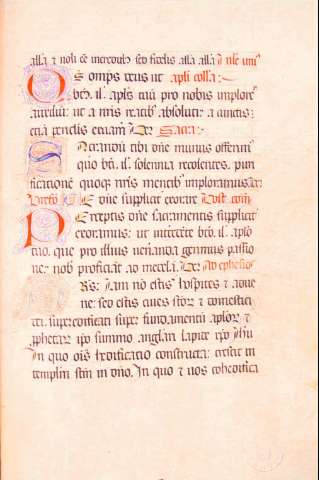 alla ⁊ noli ee incredul' sed fidelis alla alla In fe uni'
Ds omps deus ut apli colla:
bti il. aplı tuū pro nobis implore'
auxiliū: ut a nris reatib' absoluti: a cunctis
etiā periclis eruam' Per Sacra:
Sacrandū tibi dne munus offerim'
quo bti il. solennia recolentes, puri
ficacione quoq; nris mentib' imploramus
E dne supplicit exorare Post com
Perceptis dne sacramentis supplicit
exoramus: ut intercede bto il. aplo
tuo, que pro illius ueneranda gerimus passio
ne: nob proficiat ad medelā. Per Ad ephesios
Iam nō estis hospites ⁊ adue
ne: sed estis ciues scor ⁊ domestici
dei, superedificati super fundamentū aplor ⁊
ꝓphetar ipo summo angulari lapide xpo ihu
In quo ois hedificatio constructa: crescit in
templū scm in dno. In quo ⁊ uos cohedifica